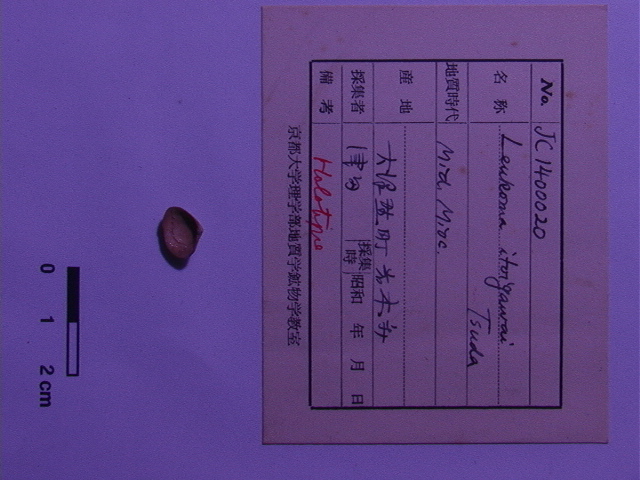 No. JC1400020
名称 Leukoma itoigawai
Tsuda
地質時代 Mid. Mioc.
産地
採集者 津田 採集時 昭和 年 月 日
備考 Holotype
京都大学理学部地質学鉱物学教室
0 1 2 cm